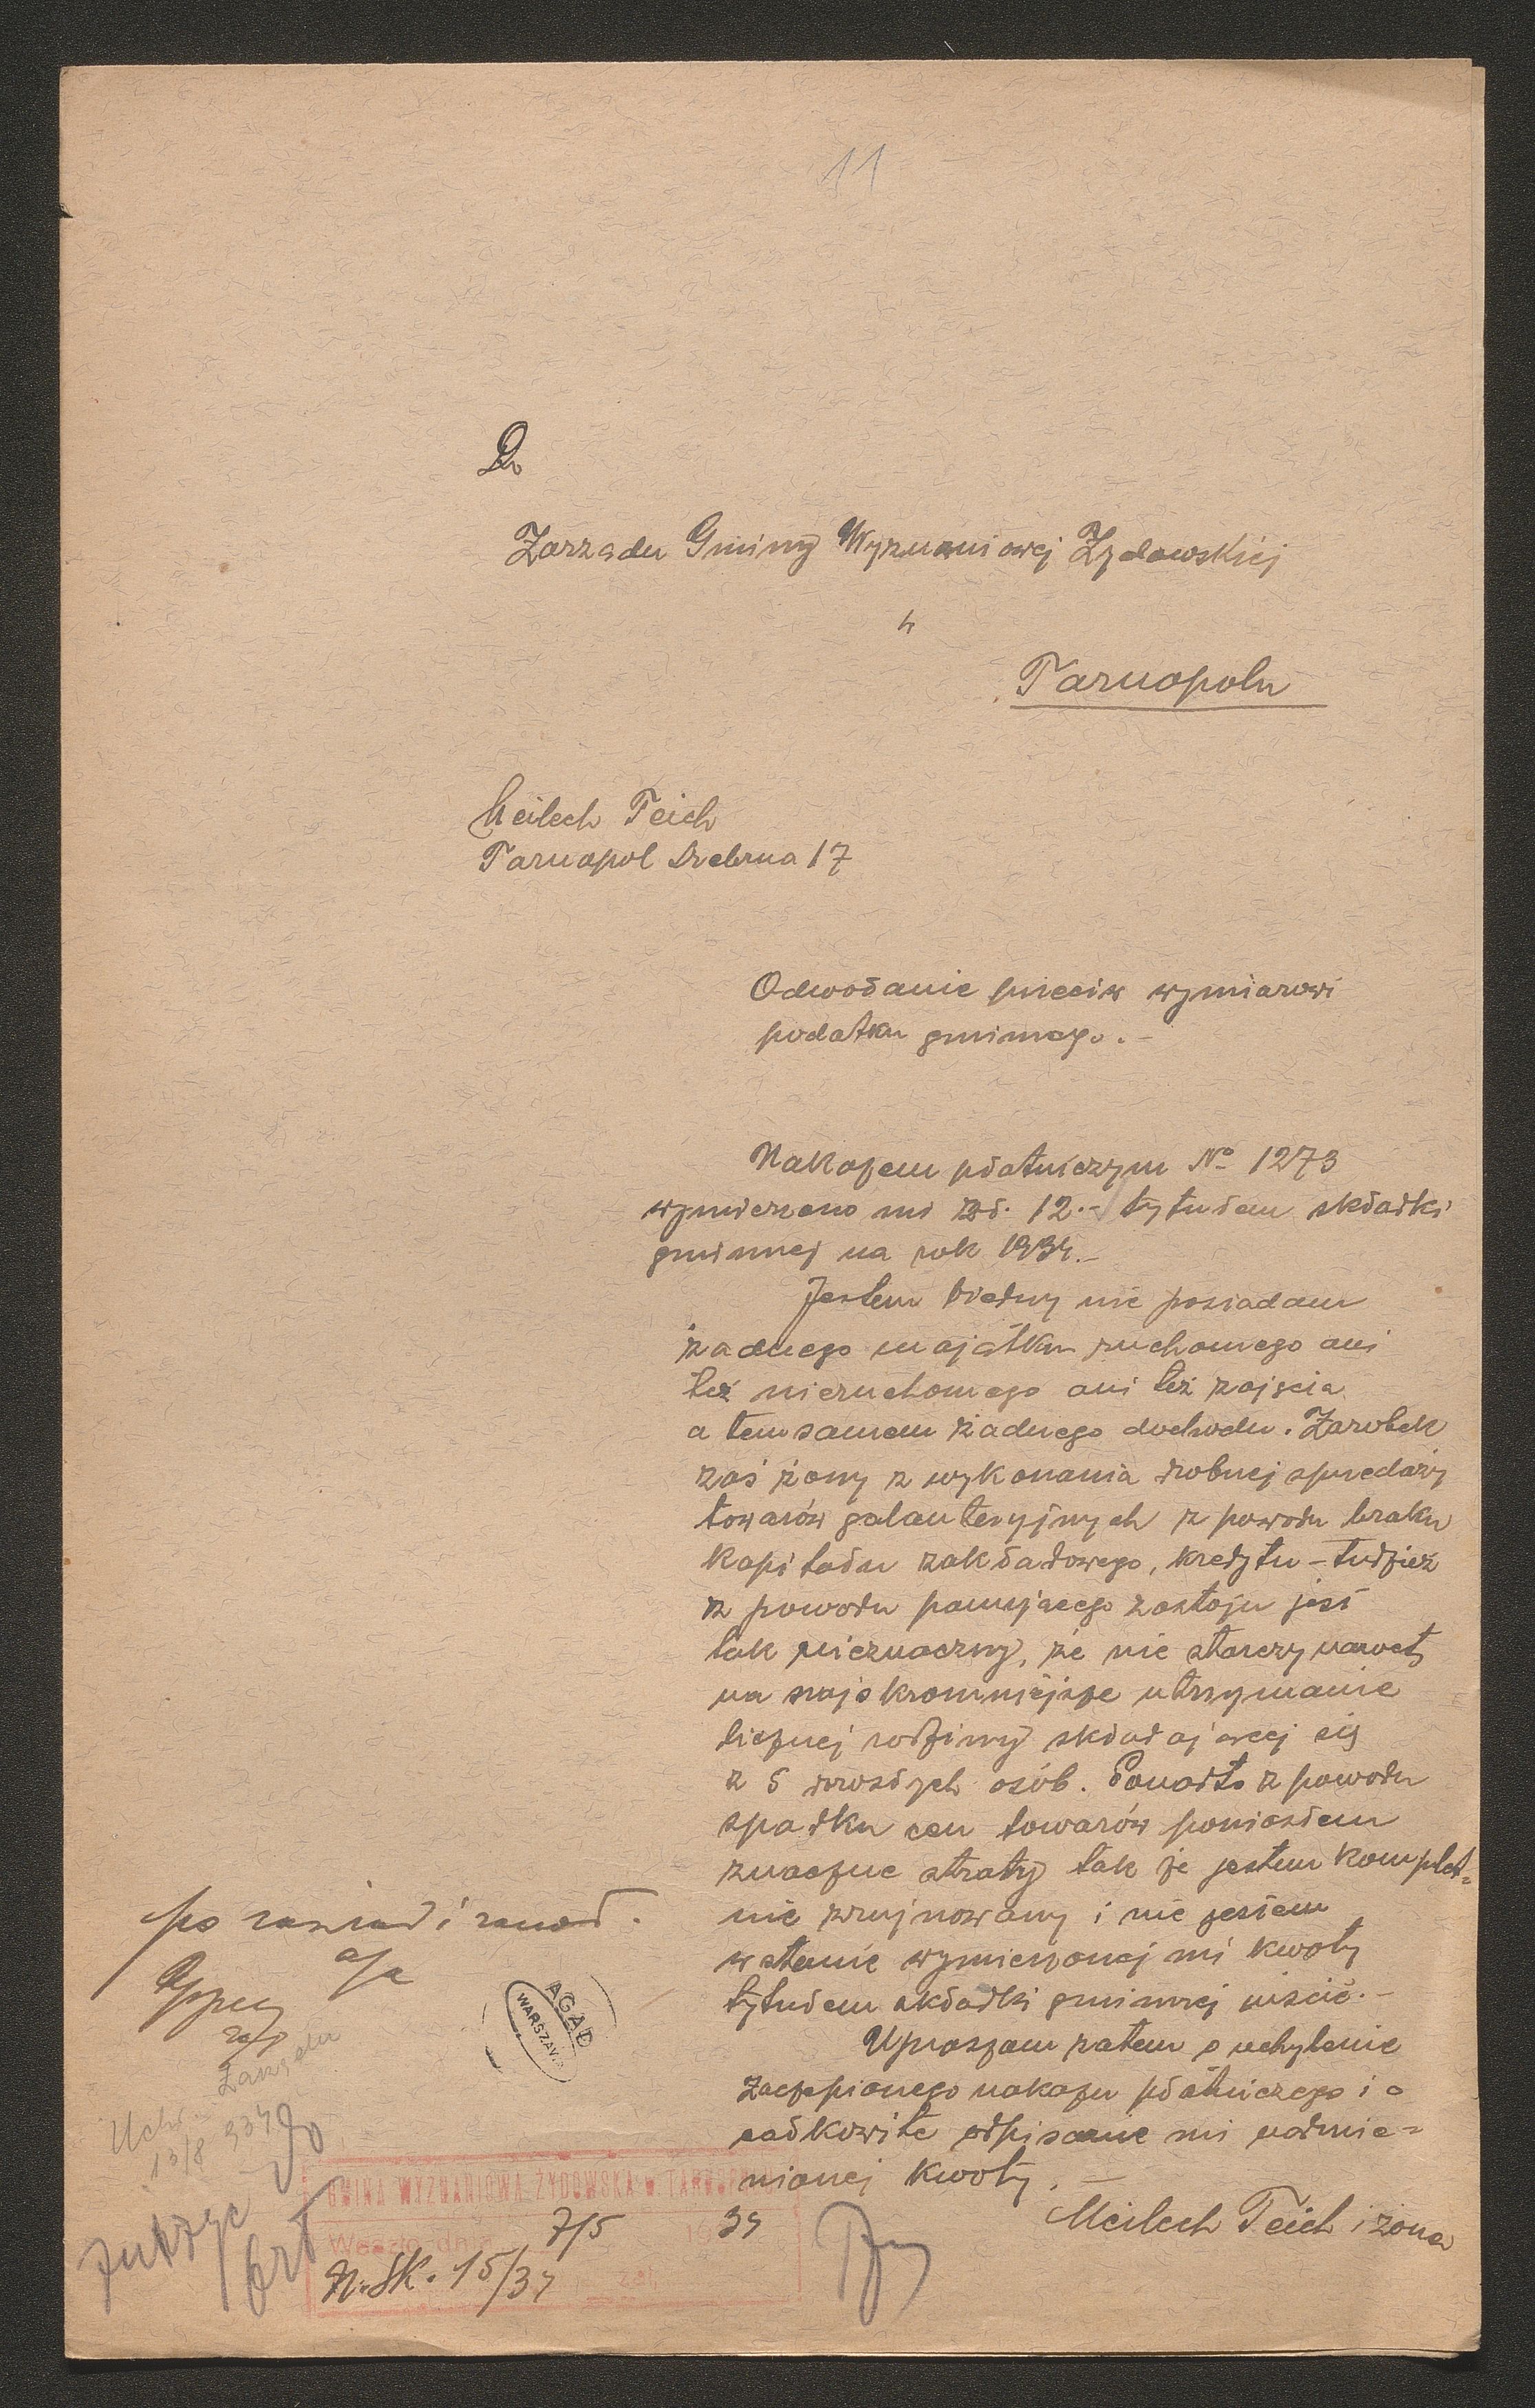 11
Do
Zarządu Gminy Wyznaniowej Żydowskiej
w
Tarnopolu
Meilech Teich
Tarnopol Srebrna 17
Odwołanie przeciw wymiarowi
podatku gminnego.-
Nakazem płatniczym No 1273
wymierzono mi zł. 12.- tytułem składki
gminnej na rok 1934.-
Jestem biedny nie posiadam
żadnego majątku ruchomego ani
też nieruchomego ani też zajęcia
a tem samem żadnego dochodu. Zarobek
zaś żony z wykonania drobnej sprzedaży
towarów galanteryjnych z powodu braku
kapitału zakładowego, kredytu - tudzież
z powodu panującego zastoju jest
tak nieznaczny, że nie starczy nawet
na najskromniejsze utrzymanie
licznej rodziny składającej się
z 5 dorosłych osób. Ponadto z powodu
spadku cen towarów poniosłem
znaczne straty tak że jestem komplet=
nie zrujnowany i nie jestem
w stanie wymierzonej mi kwoty
tytułem składki gminnej uiścić.-
Upraszam zatem o uchylenie
zaczepionego nakazu płatniczego i o
całkowite odpisanie mi nadmie=
nionej kwoty. -
Meilech Teich i żona
po
a/a
AGAD
WARSZAWA
Uchw.
13/8 934
GMINA WYZNANIOWA ŻYDOWSKA w TARNOPOLU
7/5 34
N. SK. 15/34
zał.